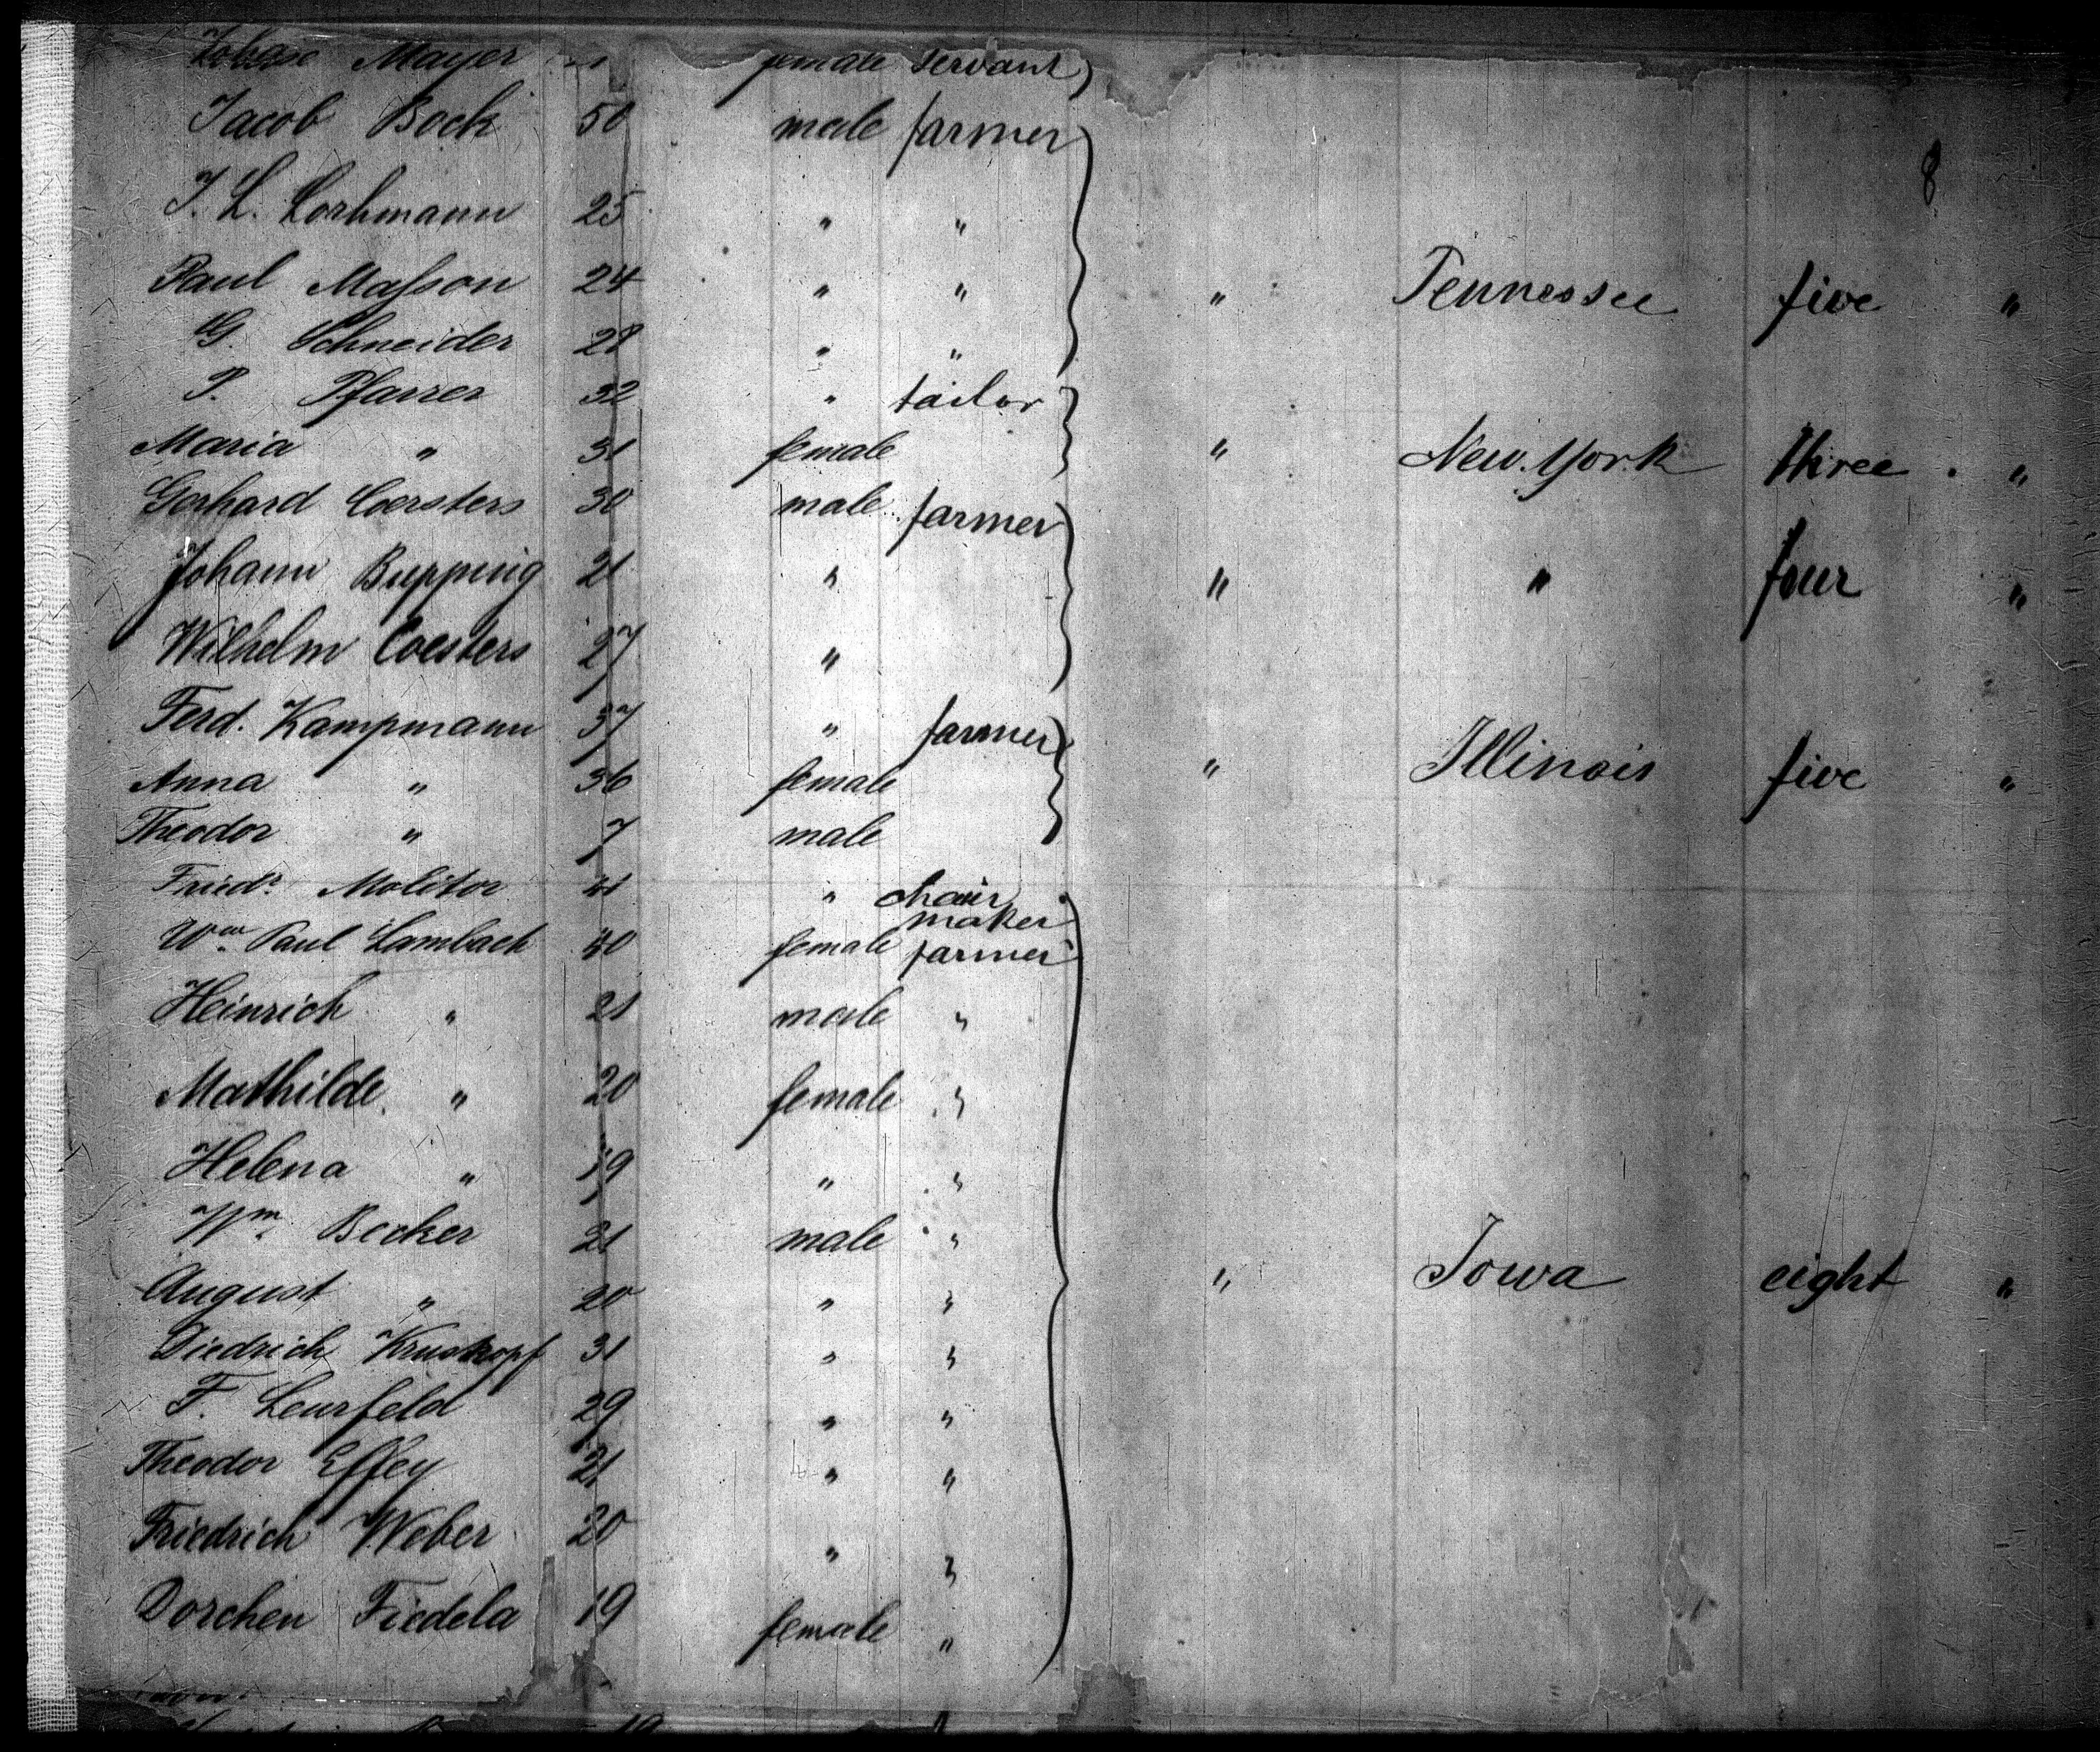 Mayer female servant
8
Jacob Bock 50 male farmer
J. L. Lorhmann 25 " "
Paul Maſson 24 " " " Tennessee five "
G. Schneider 28 " "
P. Pfarrer 32 " tailor
Maria " 31 female " New. York three . "
Gerhard Coersters 30 male farmer
Johann Bupping 21 " " " four "
Wilhelm Coesters 27 "
Ferd. Kampmann 37 " farmer
Anna " 36 female " Illinois five "
Theodor " 7 male
Friedr Molitor 41 " chair maker
Wm Paul Lambach 40 female farmer
Heinrich " 21 male "
Mathilde " 20 female "
Helena " 19 " "
Wm. Becker 21 male "
August " 20 " " " Iowa eight "
Diedrich Kruskopf 31 " "
F. Leurfeld 29 " "
Theodor Effey 21 " "
Friedrich Weber 20 " "
Dorchen Fiedela 19 female "
19